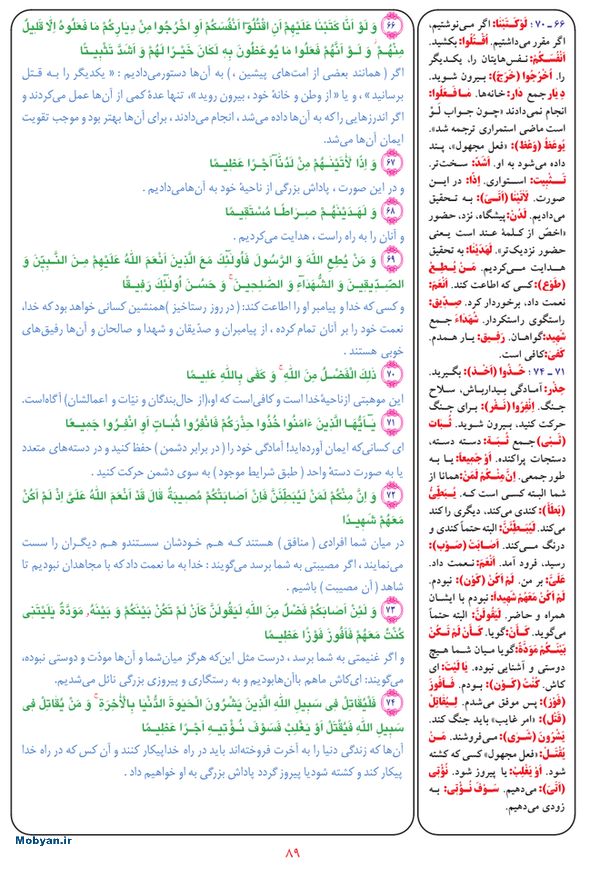 ۶۶ وَ لَوْ اَنَّا كَتَبْنَا عَلَيْهِمْ اَنِ اقْتُلُوٓا اَنْفُسَكُمْ اَوِ اخْرُجُوا مِنْ دِيَارِكُمْ مَا فَعَلُوهُ اِلَّا قَلِيلٌ
مِنْهُمْ وَ لَوْ اَنَّهُمْ فَعَلُوا مَا يُوعَظُونَ بِهِ لَكَانَ خَيْرًا لَهُمْ وَ اَشَدَّ تَثْبِيتًا
اگر ( همانند بعضی از امت‌های پیشین ، ) به آن‌ها دستورمی‌دادیم : « یکدیگر را به قتل
برسانید » ، و یا « از وطن و خانهٔ خود ، بیرون روید » ، تنها عدهٔ کمی از آن‌ها عمل می‌کردند و
اگر اندرزهایی را که به آن‌ها داده می‌شد ، انجام می‌دادند ، برای آن‌ها بهتر بود و موجب تقویت
ایمان آن‌ها می‌شد.
۶۷ وَ اِذًا لَأٰتَيْنَـٰهُمْ مِنْ لَدُنَّآ اَجْرًا عَظِيمًا
و در این صورت ، پاداش بزرگی از ناحیهٔ خود به آن‌هامی‌دادیم .
۶۸ وَ لَهَدَيْنَـٰهُمْ صِرَاطًا مُسْتَقِيمًا
و آنان را به راه راست ، هدایت می‌کردیم .
۶۹ وَ مَنْ يُطِعِ اللهَ وَ الرَّسُولَ فَاُولَـٰٓئِكَ مَعَ الَّذِينَ اَنْعَمَ اللهُ عَلَيْهِمْ مِنَ النَّبِيِّينَ وَ
الصِّدِّيقِينَ وَ الشُّهَدَآءِ وَ الصَّالِحِينَ وَ حَسُنَ اُولَـٰٓئِكَ رَفِيقًا
و کسی که خدا و پیامبر او را اطاعت کند؛ ( در روز رستاخیز ) همنشین کسانی خواهد بود که خدا،
نعمت خود را بر آنان تمام کرده ، از پیامبران و صدّیقان و شهدا و صالحان و آن‌ها رفیق‌های
خوبی هستند .
۷۰ ذٰلِكَ الْفَضْلُ مِنَ اللهِ وَ كَفَى بِاللهِ عَلِيمًا
این موهبتی ازناحیهٔ خدا است و کافی‌است که او،(از حال‌بندگان و نیّات و اعمالشان) آگاه‌است.
۷۱ يَـٰٓاَيُّهَا الَّذِينَ ءَامَنُوا خُذُوا حِذْرَكُمْ فَانْفِرُوا ثُبَاتٍ اَوِ انْفِرُوا جَمِيعًا
ای کسانی‌که ایمان آورده‌اید! آمادگی خود را ( در برابر دشمن ) حفظ کنید و در دسته‌های متعدد
یا به صورت دستهٔ واحد ( طبق شرایط موجود ) به سوی دشمن حرکت کنید .
۷۲ وَ اِنَّ مِنْكُمْ لَمَنْ لَيُبَطِّئَنَّ فَاِنْ اَصَابَتْكُمْ مُصِيبَةٌ قَالَ قَدْ اَنْعَمَ اللهُ عَلَىَّ اِذْ لَمْ اَكُنْ
مَعَهُمْ شَهِيدًا
در میان شما افرادی ( منافق ) هستند که هم خودشان سستندو هم دیگران را سست
می‌نمایند ، اگر مصیبتی به شما برسد می‌گویند : خدا به ما نعمت داد که با مجاهدان نبودیم تا
شاهد ( آن مصیبت ) باشیم .
۷۳ وَ لَئِنْ اَصَابَكُمْ فَضْلٌ مِنَ اللهِ لَيَقُولَنَّ كَأَنْ لَمْ تَكُنْ بَيْنَكُمْ وَ بَيْنَهُ مَوَدَّةٌ يَـٰلَيْتَنِى
كُنْتُ مَعَهُمْ فَاَفُوزَ فَوْزًا عَظِيمًا
و اگر غنیمتی به شما برسد ، درست مثل این‌که هرگز میان‌شما و آن‌ها مودّت و دوستی نبوده،
می‌گویند: ای‌کاش ماهم باآن‌هابودیم و به رستگاری و پیروزی بزرگی نائل می‌شدیم.
۷۴ فَلْيُقَاتِلْ فِى سَبِيلِ اللهِ الَّذِينَ يَشْرُونَ الْحَيَوٰةَ الدُّنْيَا بِالْأٰخِرَةِ وَ مَنْ يُقَاتِلْ فِى
سَبِيلِ اللهِ فَيُقْتَلْ اَوْ يَغْلِبْ فَسَوْفَ نُؤْتِيهِ اَجْرًا عَظِيمًا
آن‌ها که زندگی دنیا را به آخرت فروخته‌اند باید در راه خداپیکار کنند و آن کس که در راه خدا
پیکار کند و کشته شودیا پیروز گردد پاداش بزرگی به او خواهیم داد .
۶۶ ـ ۷۰ : لَوْكَتَبْنَا: اگر می‌نوشتیم،
اگر مقرر می‌داشتیم. اُقْتُلُوا: بکشید.
اَنْفُسَكُمْ: نفس‌هایتان را، یکدیگر
را. اُخْرُجُوا (خَرَجَ): بیرون شوید.
دِيَار جمع دَار: خانه‌ها. مَا فَعَلُوا:
انجام نمی‌دادند (چون جواب لَوْ
است ماضی استمراری ترجمه شد).
يُوعَظُ (وَعَظَ): «فعل مجهول»، پند
داده می‌شود به او. اَشَدَّ: سخت‌تر.
تَثْبِيت: استواری. اِذًا: در این
صورت. لَأٰتَيْنَا (اَتَىَ): به تحقیق
می‌دادیم. لَدُنْ: پیشگاه، نزد، حضور
«اخصّ از کلمهٔ عند است یعنی
حضور نزدیک‌تر». لَهَدَيْنَا: به تحقیق
هدایت می‌کردیم. مَنْ يُطِعِ
(طَوَعَ): کسی که اطاعت کند. اَنْعَمَ:
نعمت داد، برخوردار کرد. صِدِّيق:
راستگوی راستکردار. شُهَدَاءَ جمع
شَهِيد: گواهان. رَفِيق: یار همدم.
كَفَىٰ: کافی است.
۷۱ ـ ۷۴ : خُذُوا (اَخَذَ): بگیرید.
حِذْر: آمادگی بیدارباش، سلاح
جنگ. اِنْفِرُوا (نَفَرَ): برای جنگ
حرکت کنید، بیرون شوید. ثُبَات
(ثَبَىَ) جمع ثُبَة: دسته دسته،
دستجات پراکنده. اَوْ جَمِيعًا: یا به
طور جمعی. اِنَّ مِنْكُمْ لَمَنْ: همانا از
شما البته کسی است که. يُبَطِّئُ
(بَطَأَ): کندی می‌کند، دیگری را کند
می‌کند. لَيُبَطِّئَنَّ: البته حتماً کندی و
درنگ می‌کند. اَصَابَتْ (صَوَبَ):
رسید، فرود آمد. اَنْعَمَ: نعمت داد.
عَلَىَّ: بر من. لَمْ اَكُنْ (كَوَنَ): نبودم.
لَمْ اَكُنْ مَعَهُمْ شَهِيدًا: نبودم با ایشان
همراه و حاضر. لَيَقُولَنَّ: البته حتماً
می‌گوید. كَأَنْ: گویا. كَأَنْ لَمْ تَكُنْ
بَيْنَكُمْ مَوَدَّةٌ: گویا میان شما هیچ
دوستی و آشنایی نبوده. يَا لَيْتَ: ای
کاش. كُنْتُ (كَوَنَ): بودم. فَاَفُوزَ
(فَوَزَ): پس موفق می‌شدم. لِيُقَاتِلْ
(قَتَلَ): «امر غایب» باید جنگ کند.
يَشْرُونَ (شَرَىَ): می‌فروشند. مَنْ
يُقْتَلْ: «فعل مجهول» کسی که کشته
شود. اَوْ يَغْلِبْ: یا پیروز شود. نُؤْتِى
(اَتَىَ): می‌دهیم. سَوْفَ نُؤْتِى: به
زودی می‌دهیم.
Mobyan.ir
۸۹